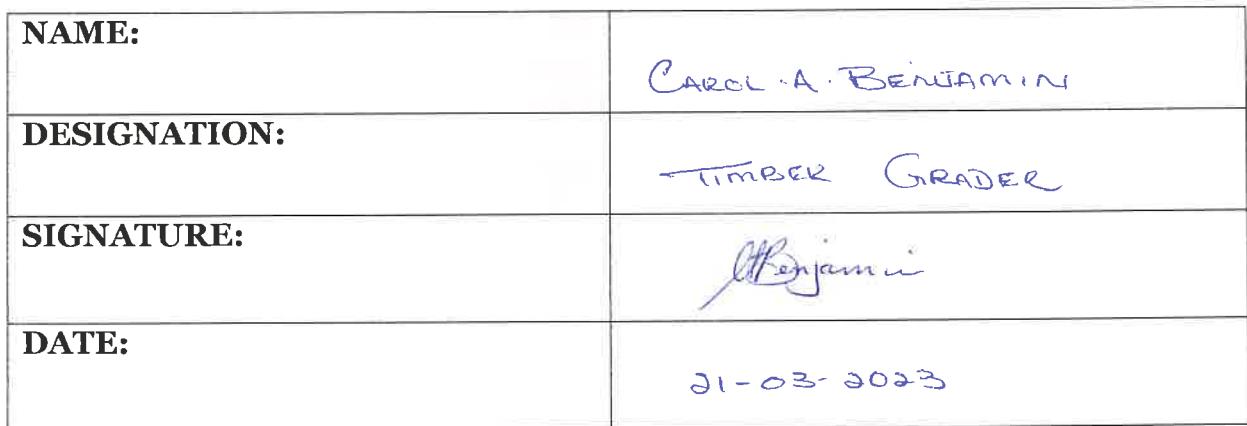 NAME:
CAROL .A. BENJAMIN
DESIGNATION:
TIMBER GRADER
SIGNATURE:
CABenjamin
DATE:
21-03-2023